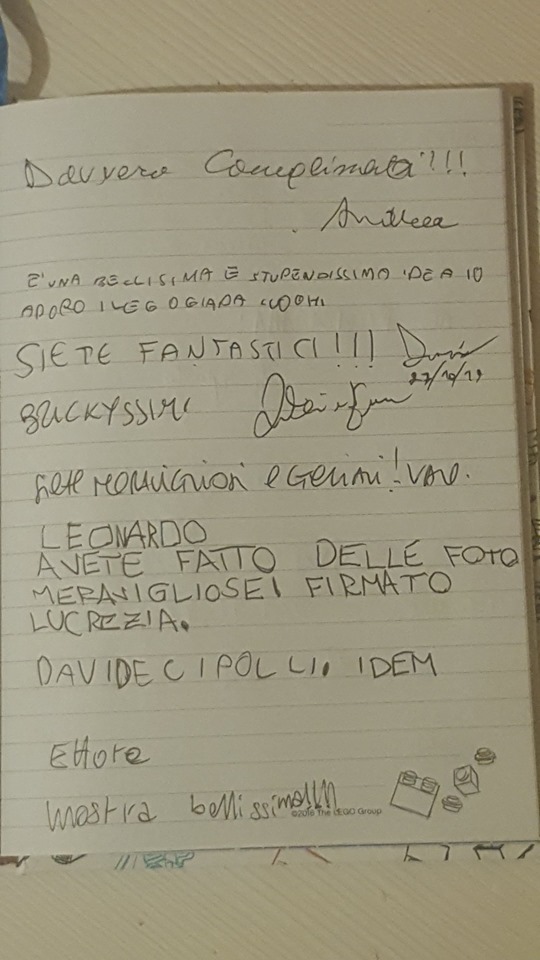 Davvero Complimenti!!!
Andreea
E' UNA BELLISIMA E STUPENDISSIMA IDEA IO
ADORO I LEGO GIADA
SIETE FANTASTICI!!! 
27/10/19
BUCKYSSIMI
siete meravigliosi e Geniali! VALE.
LEONARDO
AVETE FATTO DELLE FOTO
MERAVIGLIOSE! FIRMATO
LUCREZZIA.
DAVIDE CIPOLLI. IDEM
Ettore
mostra bellissima!!!!
©2016 The LEGO Group